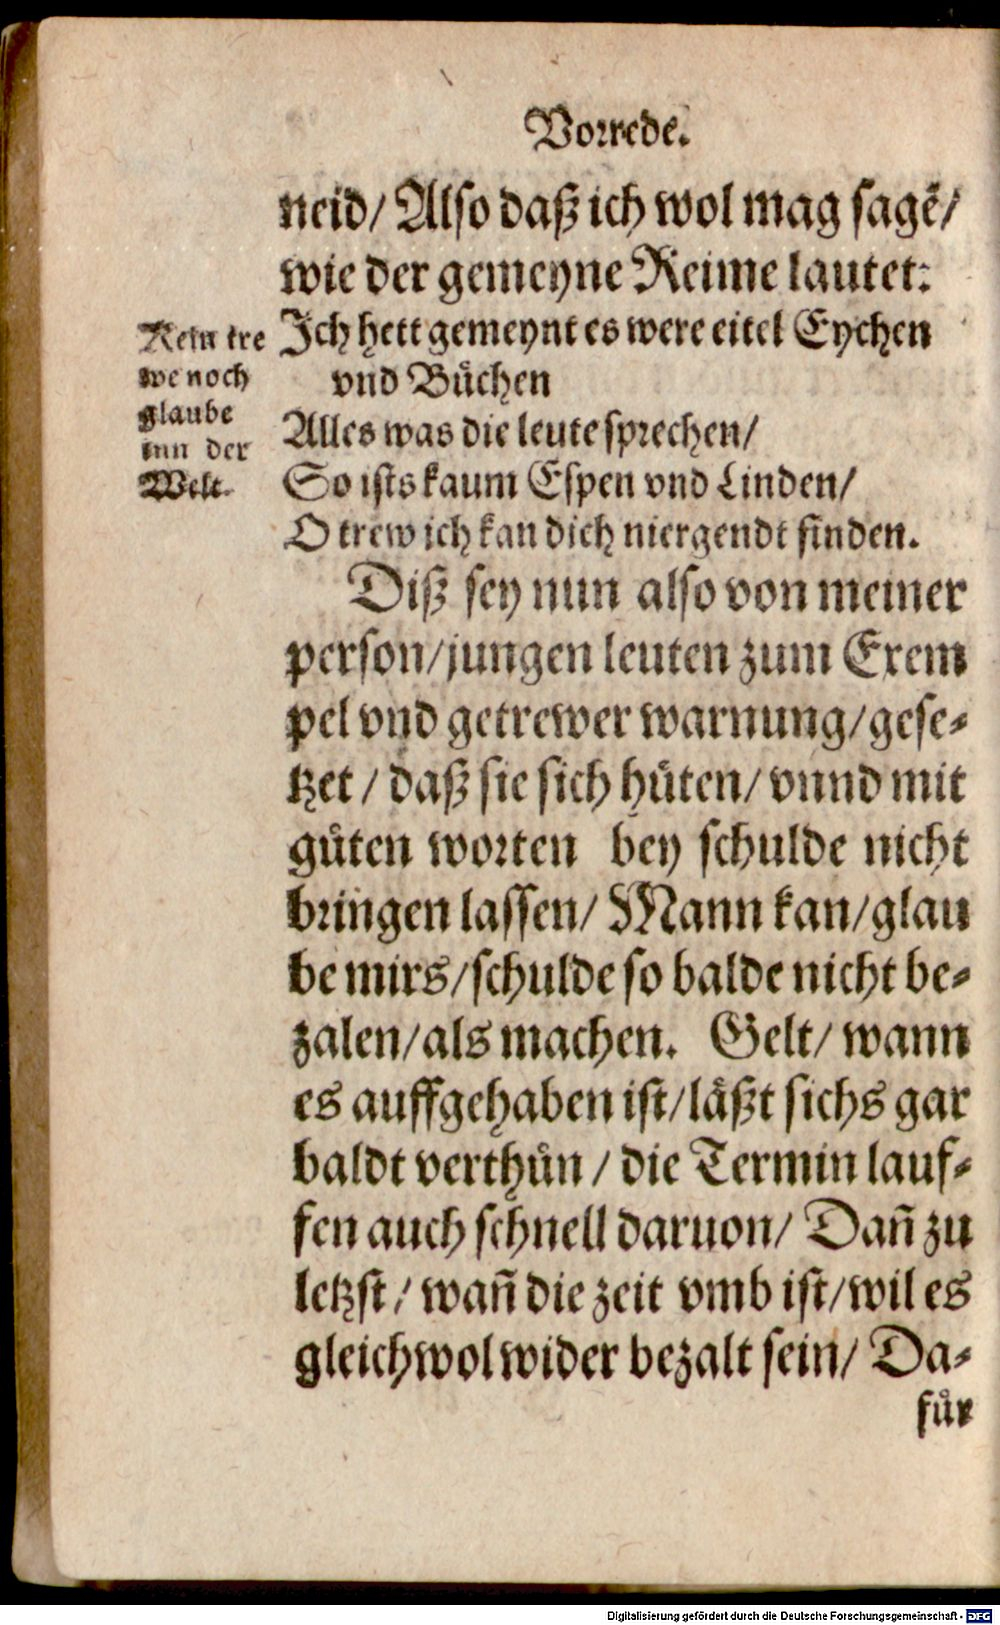 Vorrede.
neid/ Also daß ich wol mag sagẽ/
wie der gemeyne Reime lautet:
Ich hett gemeynt es were eitel Eychen
vnd Bůchen
Alles was die leute sprechen/
So ists kaum Espen vnd Linden/
O trew ich kan dich niergendt finden.
Kein tre
we noch
glaube
inn der
Welt.
Diß sey nun also von meiner
person/jungen leuten zum Exem
pel vnd getrewer warnung/gese⸗
tzet / daß sie sich hůten/ vnnd mit
gůten worten bey schulde nicht
bringen lassen/ Mann kan/glau
be mirs/schulde so balde nicht be⸗
zalen/als machen. Gelt/ wann
es auffgehaben ist/låßt sichs gar
baldt verthůn / die Termin lauf⸗
fen auch schnell daruon/ Dañ zu
letzst/ wañ die zeit vmb ist/wil es
gleichwol wider bezalt sein/ Da⸗
fůr
Digitalisierung gefördert durch die Deutsche Forschungsgemeinschaft - DFG